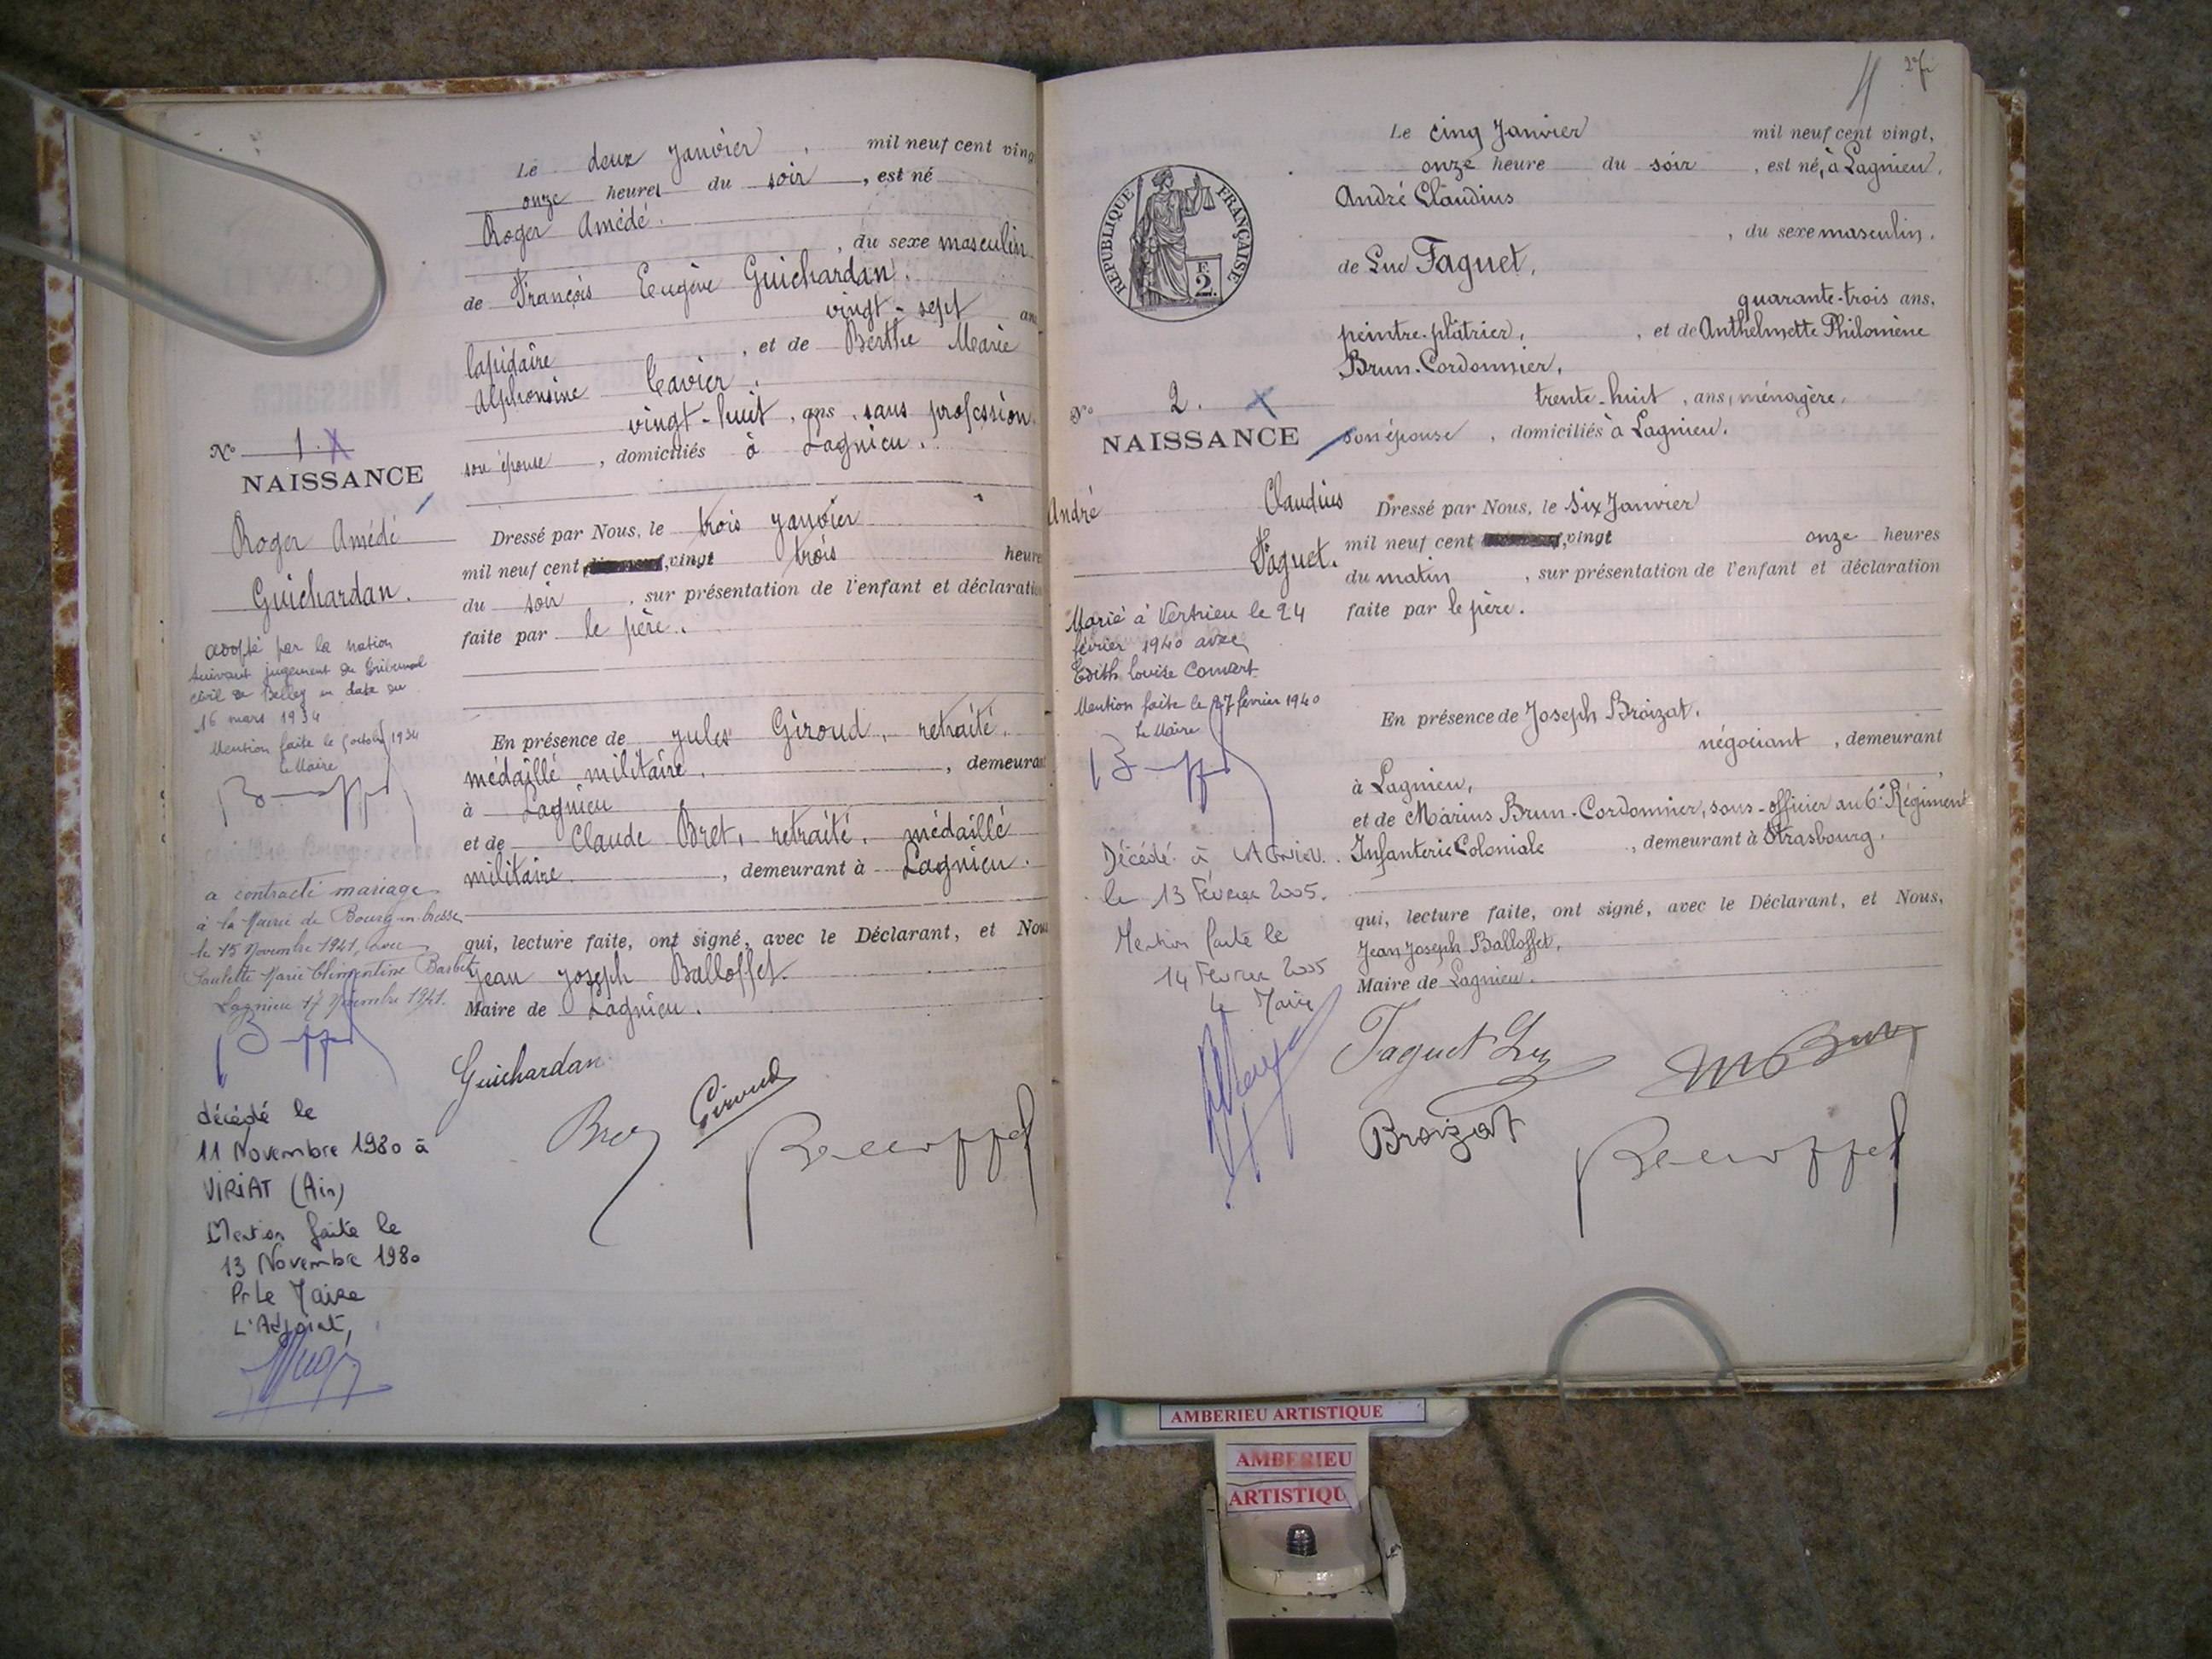 Le deux Janvier, mil neuf cent vingt
onze heures du soir, est né
Roger Amédé.
, du sexe masculin
de François Eugène Guichardan.
vingt-sept ans
lapidaire, et de Berthe Marie
Alphonsine Cavier.
vingt-huit, ans, sans profession.
son épouse, domiciliés à Lagnieu.
N° 1.
NAISSANCE
Roger Amédé
Guichardan.
adopté par la nation
suivant jugement du tribunal
civil de Belley en date du
16 mars 1934
Mention faite le octobre 1934
Le Maire
a contracté mariage
à la Mairie de Bourg-en-bresse
le 15 Novembre 1941, avec
Paulette Marie Clémentine Barbet
Lagnieu 17 Novembre 1941.
décédé le
11 Novembre 1980 à
VIRIAT (Ain)
Mention faite le
13 Novembre 1980
Pr Le Maire
L'Adjoint,
Dressé par Nous, le trois Janvier
mil neuf cent, vingt trois heures
du soir, sur présentation de l'enfant et déclaration
faite par le père.
En présence de Jules Giroud, retraité,
médaillé militaire, demeurant
à Lagnieu
et de Claude Bret, retraité, médaillé
militaire, demeurant à Lagnieu.
qui, lecture faite, ont signé, avec le Déclarant, et Nous
Jean Joseph Balloffet.
Maire de Lagnieu.
Guichardan
Bret Giroud
Balloffet
Le cinq Janvier mil neuf cent vingt,
onze heure du soir, est né, à Lagnieu,
André Claudius
, du sexe masculin.
de Luc Faguet,
quarante-trois ans,
peintre-plâtrier, et de Anthelmette Philomène
Brun-Cordonnier,
trente-huit, ans, ménagère,
son épouse, domiciliés à Lagnieu.
REPUBLIQUE FRANÇAISE
F.
2.
N° 2.
NAISSANCE
André Claudius
Faguet.
Marié à Vertrieu le 24
février 1940 avec
Edith Louise
Mention faite le 27 février 1940
Le Maire
Décédé à LAGNIEU.
le 13 Février 2005.
Mention faite le
14 Février 2005
Le Maire
Dressé par Nous, le six Janvier
mil neuf cent, vingt onze heures
du matin, sur présentation de l'enfant et déclaration
faite par le père.
En présence de Joseph Broizat.
négociant, demeurant
à Lagnieu,
et de Marius Brun-Cordonnier, sous-officier au 6e Régiment
Infanterie Coloniale, demeurant à Strasbourg.
qui, lecture faite, ont signé, avec le Déclarant, et Nous,
Jean Joseph Balloffet,
Maire de Lagnieu.
Faguet Luc
Broizat
Balloffet
AMBERIEU ARTISTIQUE
AMBERIEU
ARTISTIQU